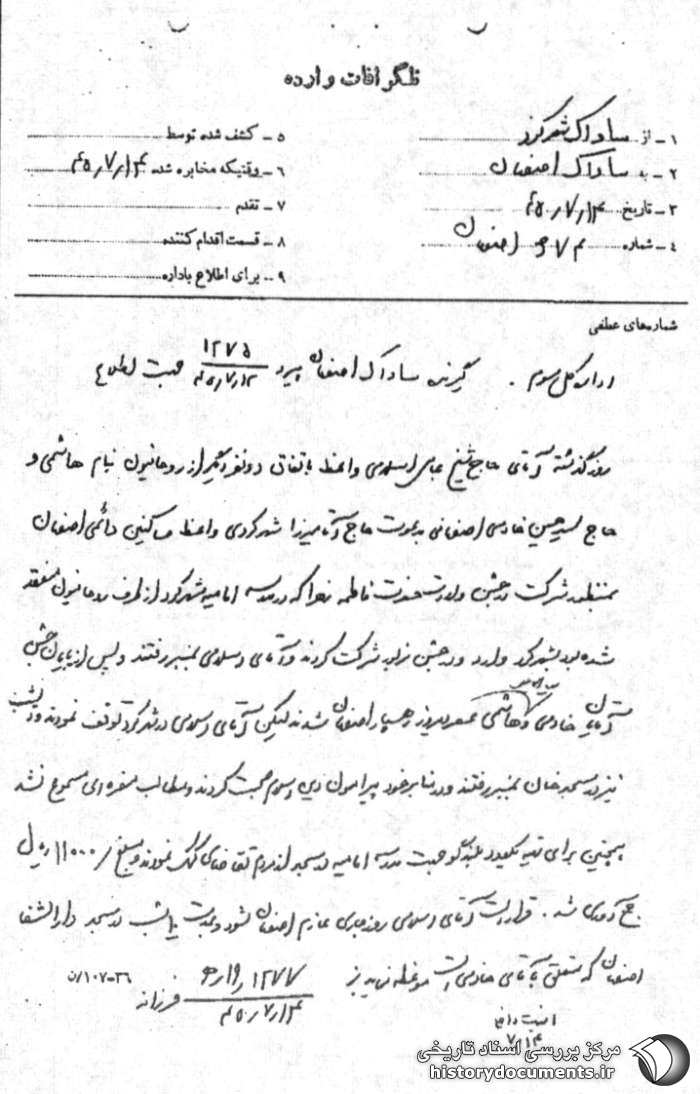 تلگرافات وارده
۱ - از ساواک شهرکرد
۲ - به ساواک اصفهان
۳ - تاریخ ۴۵/۷/۱۴
۴ - شماره اصفهان
۵ - کشف شده توسط
۶ - وقتیکه مخابره شده ۴۵/۷/۱۴
۷ - تقدم
۸ - قسمت اقدام کننده
۹ - برای اطلاع باداره
شماره‌های عطفی
اداره کل سوم . گیرنده ساواک اصفهان پیرو ۱۲۷۵ ۴۵/۷/۱۲ جهت اطلاع
روز گذشته آقای حاج شیخ عباسعلی اسلامی واعظ باتفاق دو نفر دیگر از روحانیون بنام هاشمی و
حاج سید حسین خادمی اصفهانی بدعوت حاج آقا میرزا شهرکردی واعظ ساکنین دائمی اصفهان
بمنظور شرکت در جشن ولادت حضرت فاطمه زهرا که در مدرسه امامیه شهرکرد از طرف روحانیون منعقد
شده بود بشهرکرد وارد و در جشن مزبور شرکت کردند و آقای اسلامی بمنبر رفتند و پس از پایان جشن
آقایان خادمی و هاشمی عصر دیروز رهسپار اصفهان شدند لیکن آقای اسلامی در شهرکرد توقف نمودند و دیشب
نیز در مسجد خان بمنبر رفتند و در بیانات خود پیرامون دین اسلام صحبت کردند و مطالب مضره ای مسموع نشد
همچنین برای تهیه یکعدد بلندگو جهت مدرسه امامیه در مسجد از مردم تقاضای کمک نمودند و مبلغ ۱۱۰۰۰/ ریال
جمع آوری شد . قرار است آقای اسلامی روز جاری عازم اصفهان شود و بمدت ده شب در مسجد دارالشفا
اصفهان که متعلق بآقای خادمی است موعظه نماید
۱۲۷۷ ۴۵/۷/۱۴ فرزانه
۱۰۷-۳۶/ن
امنیت داخلی
۷/۱۴
مرکز بررسی اسناد تاریخی
historydocuments.ir